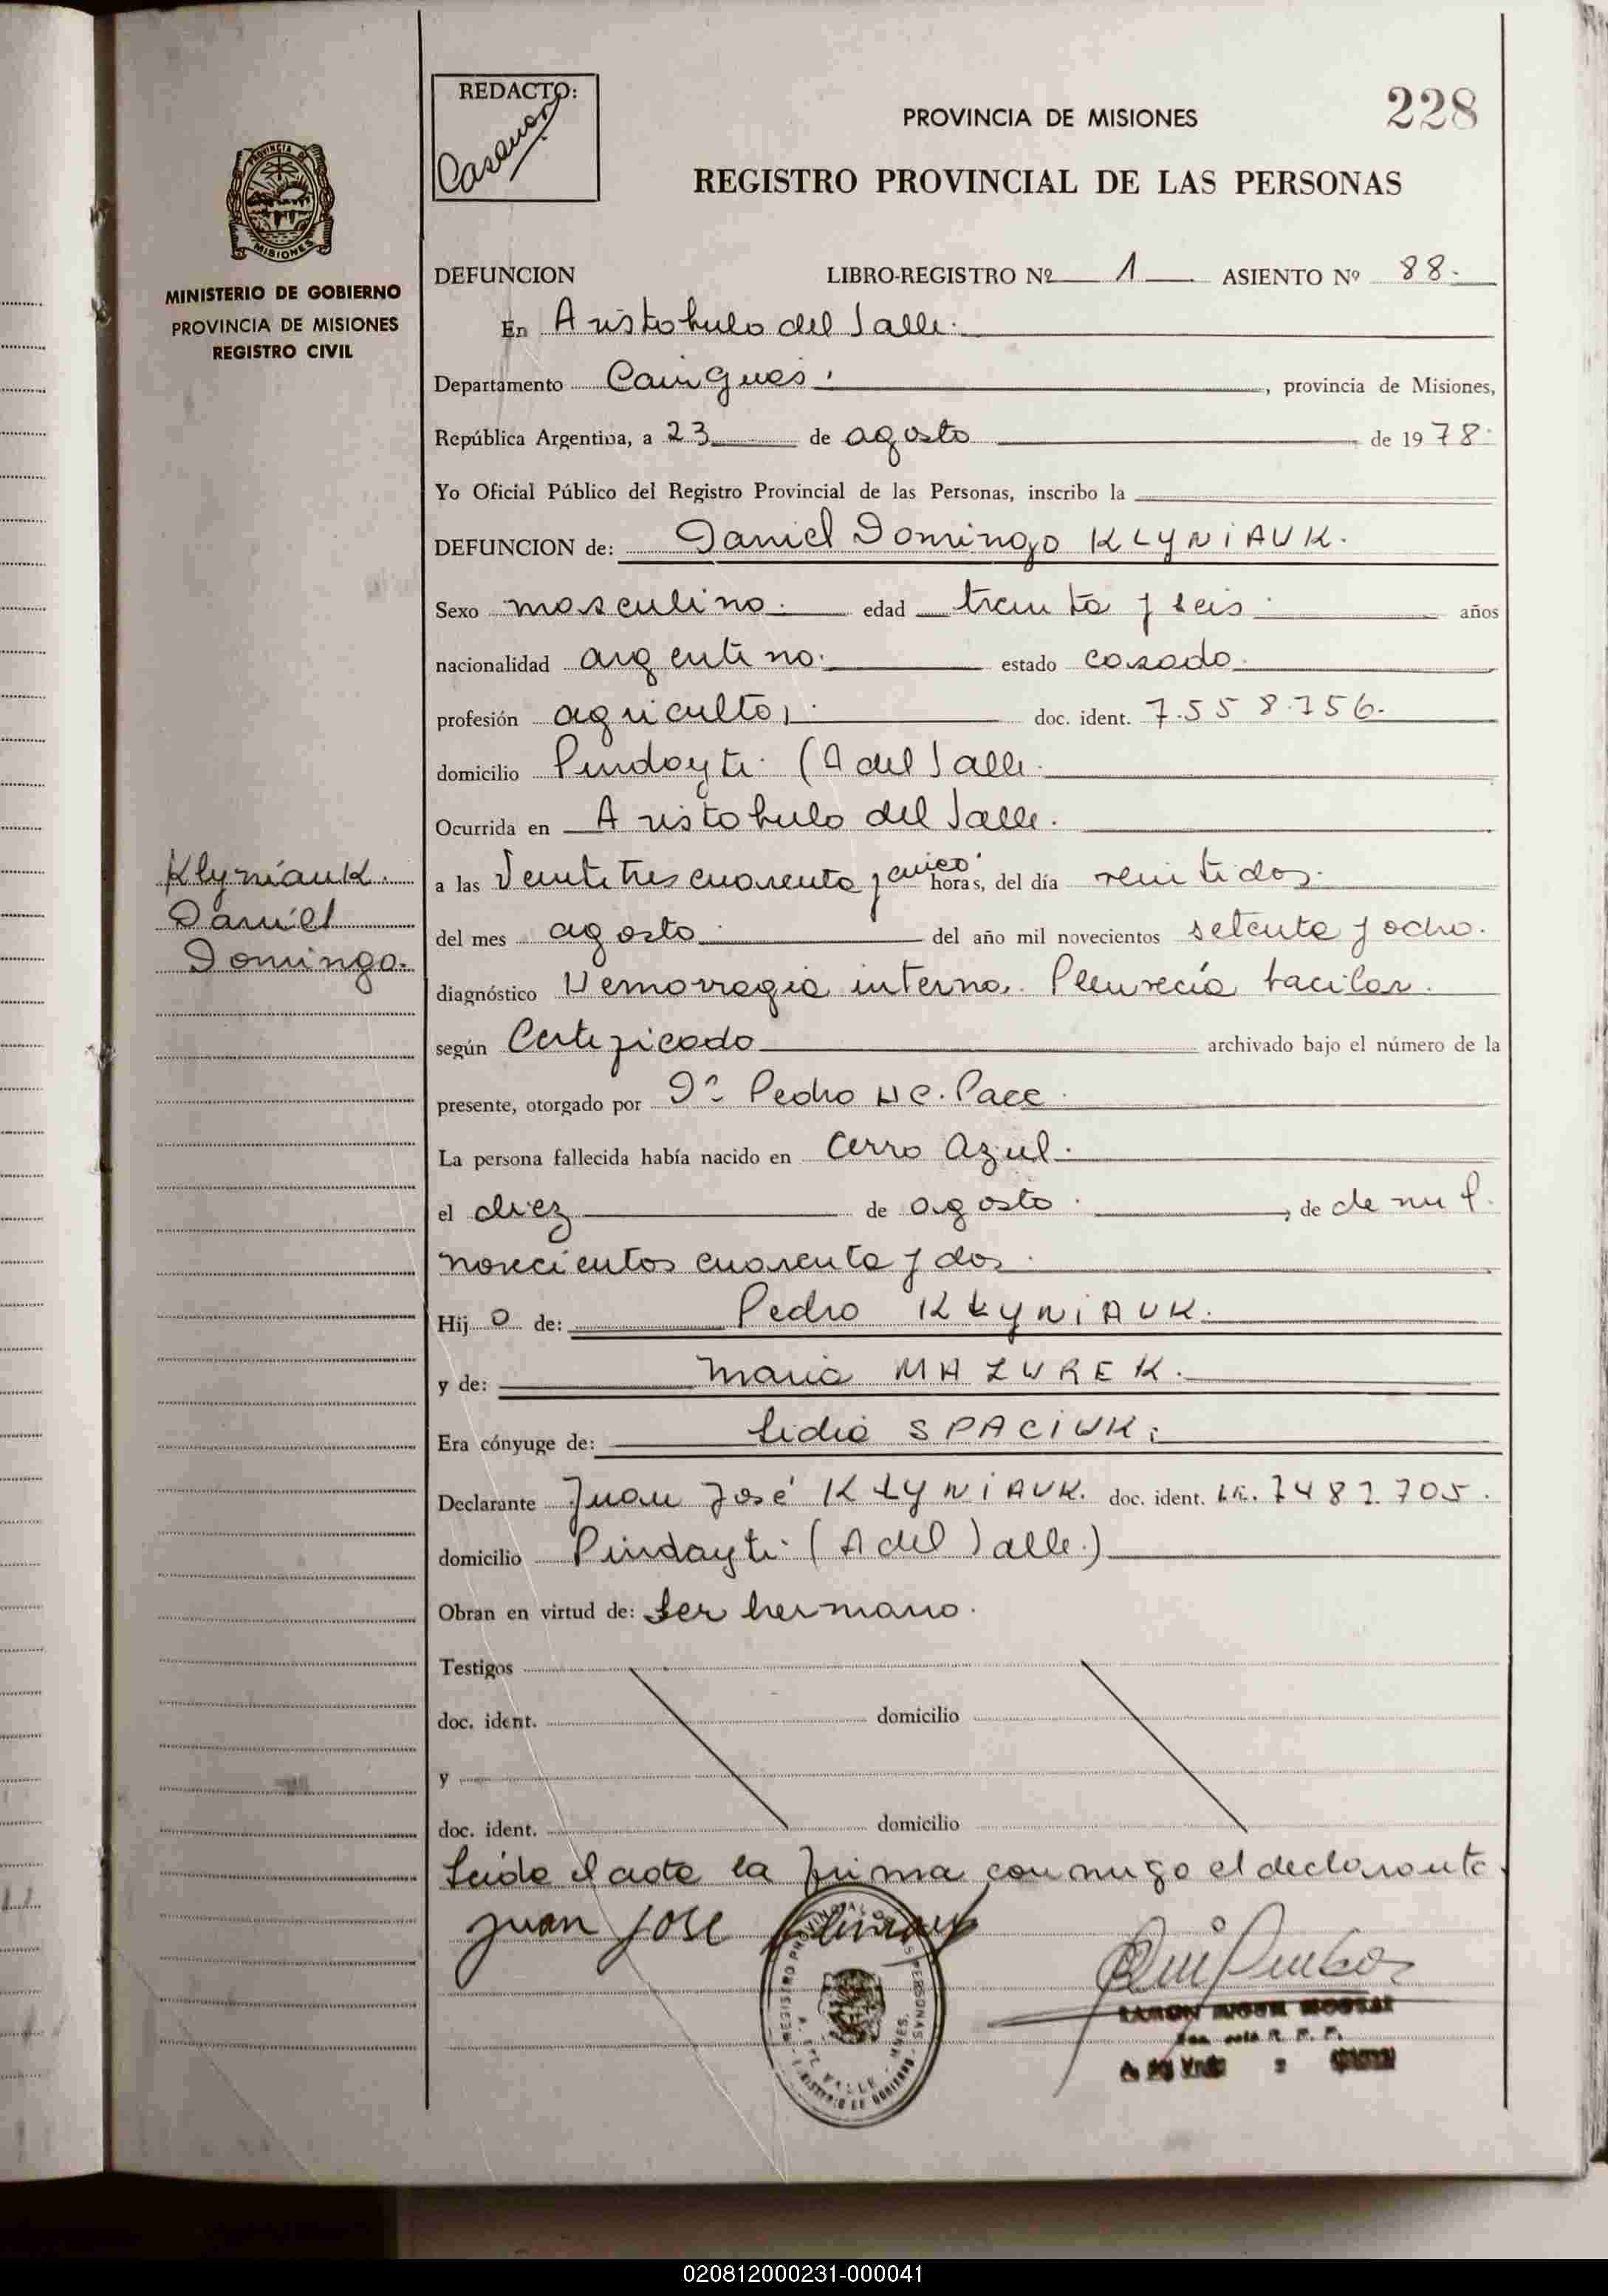 REDACTO:
PROVINCIA DE MISIONES
228
REGISTRO PROVINCIAL DE LAS PERSONAS
PROVINCIA DE
MISIONES
MINISTERIO DE GOBIERNO
PROVINCIA DE MISIONES
REGISTRO CIVIL
DEFUNCION LIBRO-REGISTRO Nº 1 ASIENTO Nº 88.
En Aristobulo del Valle.
Departamento Cainguas. , provincia de Misiones,
República Argentina, a 23 de agosto de 1978.
Yo Oficial Público del Registro Provincial de las Personas, inscribo la
DEFUNCION de: Daniel Domingo KLYNIAUK.
Sexo masculino. edad treinta y seis. años
nacionalidad argentino. estado casado.
profesión agricultor. doc. ident. 7.558.756.
domicilio Pindayti. (A del Valle.
Ocurrida en Aristobulo del Valle.
a las Veintitres cuarenta y cinco horas, del día veintidos.
del mes agosto. del año mil novecientos setenta y ocho.
diagnóstico Hemorragia interna. Pleurecía bacilar.
según Certificado archivado bajo el número de la
presente, otorgado por Dr. Pedro HC. Pace.
La persona fallecida había nacido en Cerro Azul.
el diez de agosto. , de de mil
novecientos cuarenta y dos.
Hijo de: Pedro KLYNIAUK.
y de: Maria MAZUREK.
Era cónyuge de: Lidia SPACIUK.
Declarante Juan José KLYNIAUK. doc. ident. LE. 7482705.
domicilio Pindayti. (A del Valle.)
Obran en virtud de: ser hermano.
Testigos
doc. ident. domicilio
y
doc. ident. domicilio
Leida el acta la firma conmigo el declarante.
Juan JOSE
Klyniauk.
Daniel
Domingo.
REGISTRO PROVINCIAL DE LAS PERSONAS
A. DEL VALLE - MNES.
MINISTERIO DE GOBIERNO
020812000231-000041